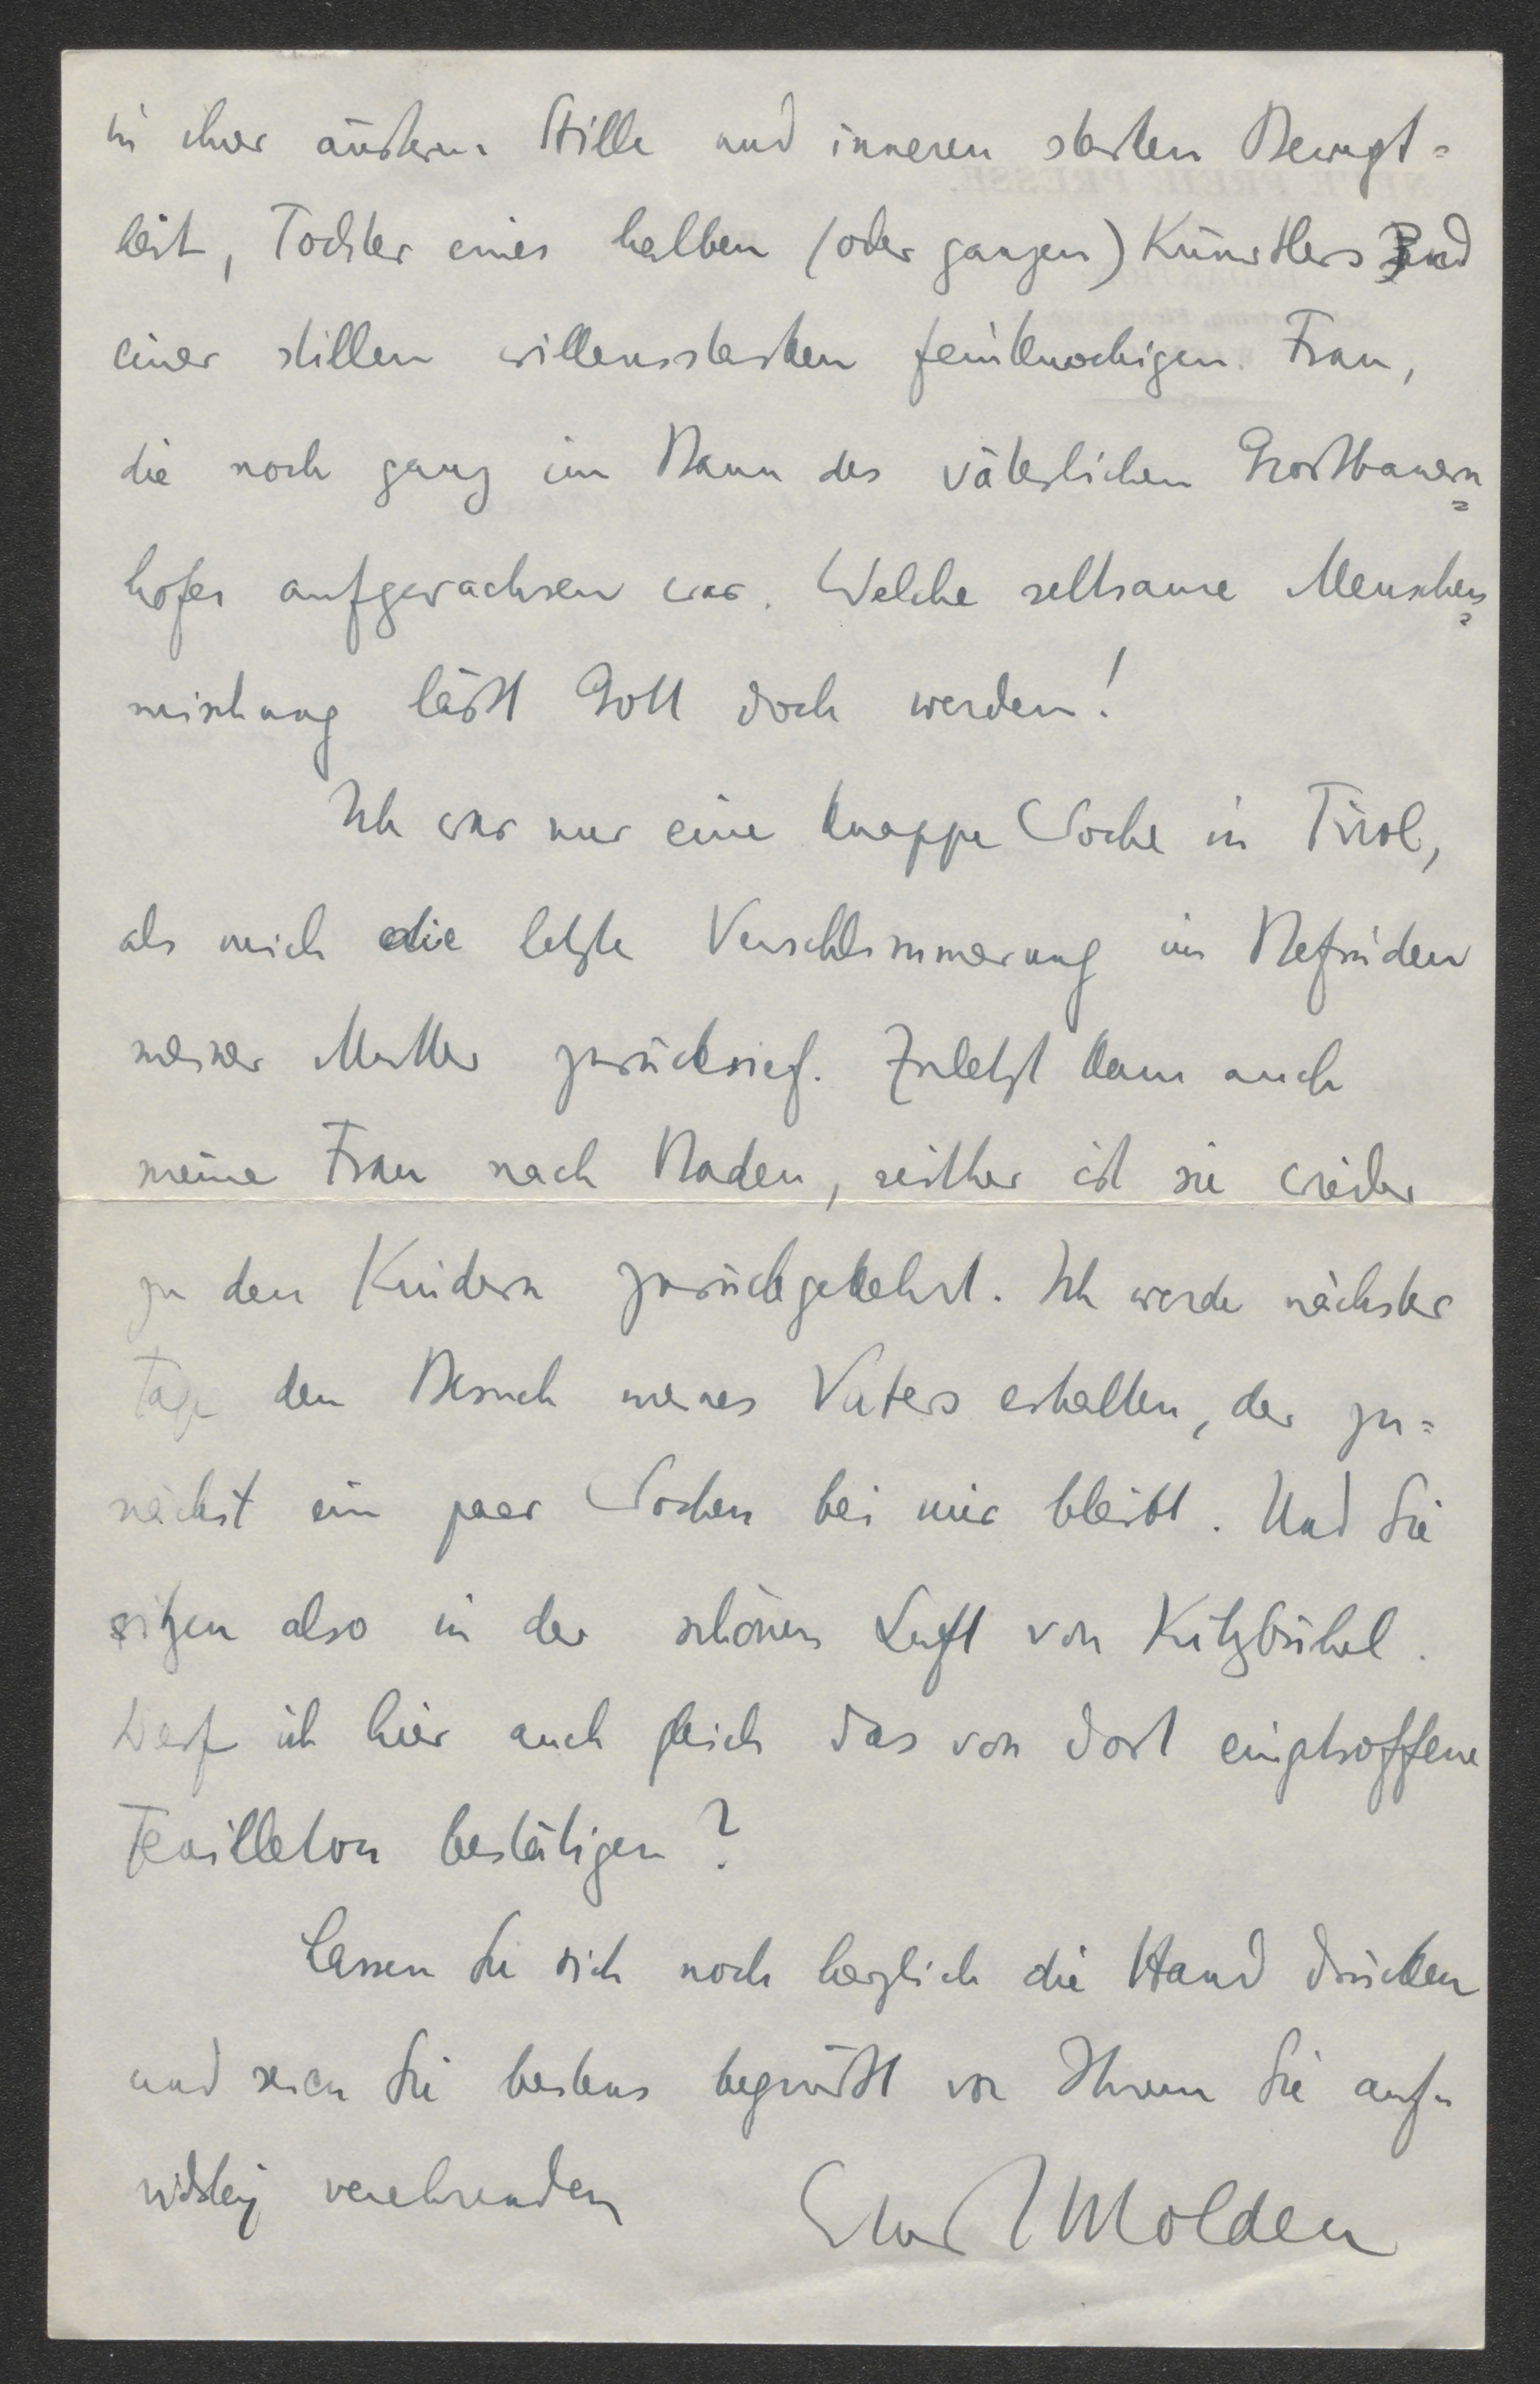 in ihrer äußeren Stille und inneren starken Bewegt=
heit, Tochter eines halben (oder ganzen) Künstlers und
einer stillen willensstarken feinknochigen Frau,
die noch ganz im Bann des väterlichen Großbauern=
hofes aufgewachsen war. Welche seltsame Menschen=
mischung läßt Gott doch werden!
Ich war nur eine knappe Woche in Tirol,
als mich die letzte Verschlimmerung im Befinden
meiner Mutter zurückrief. Zuletzt kam auch
meine Frau nach Baden, seither ist sie wieder
zu den Kindern zurückgekehrt. Ich werde nächster
Tage den Besuch meines Vaters erhalten, der zu=
nächst ein paar Wochen bei mir bleibt. Und Sie
sitzen also in der schönen Luft von Kitzbühel.
Darf ich hier auch gleich das von dort eingetroffene
Feuilleton bestätigen?
Lassen Sie sich noch herzlich die Hand drücken
und seien Sie bestens begrüßt von Ihrem Sie auf=
richtig verehrenden Ernst Molden